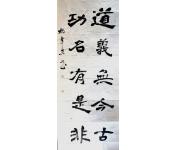 道義無今古
功名有是非